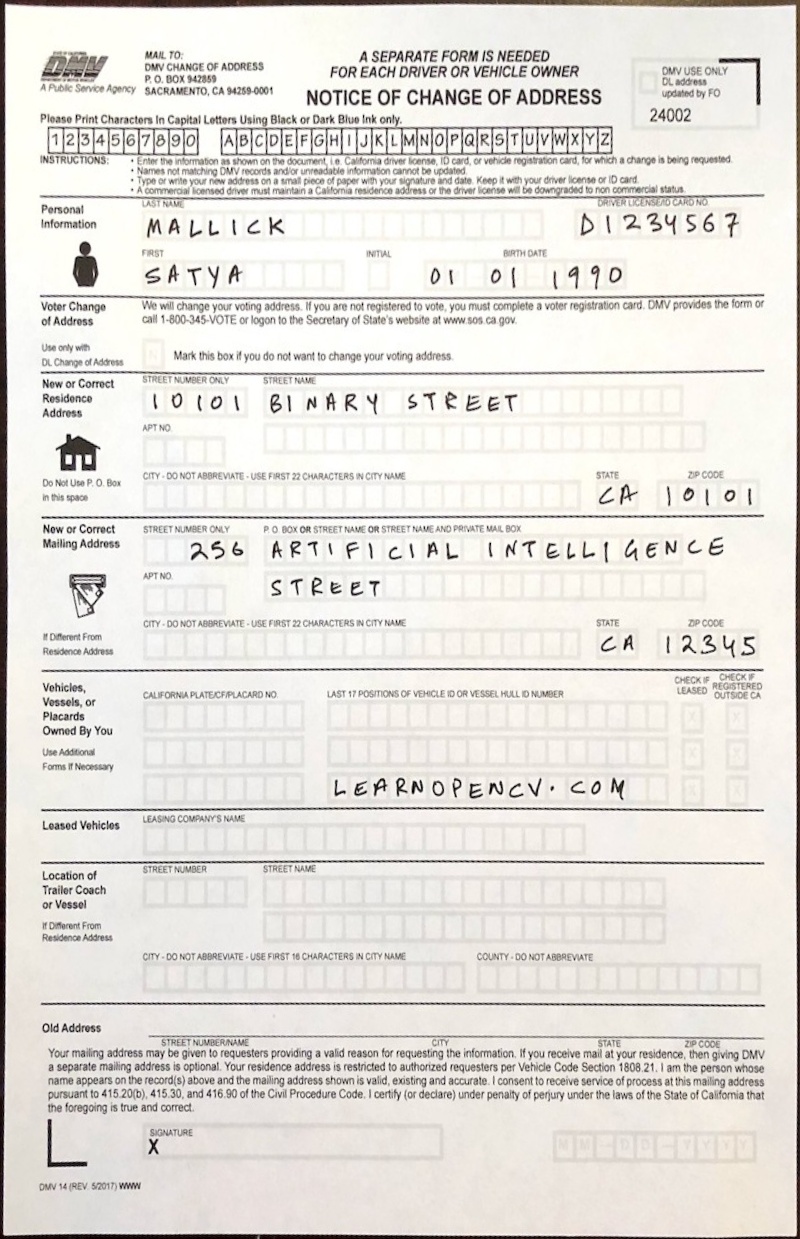 STATE OF CALIFORNIA
DMV
DEPARTMENT OF MOTOR VEHICLES
A Public Service Agency
MAIL TO:
DMV CHANGE OF ADDRESS
P. O. BOX 942859
SACRAMENTO, CA 94259-0001
A SEPARATE FORM IS NEEDED
FOR EACH DRIVER OR VEHICLE OWNER
NOTICE OF CHANGE OF ADDRESS
DMV USE ONLY
DL address
updated by FO
24002
Please Print Characters In Capital Letters Using Black or Dark Blue Ink only.
1 2 3 4 5 6 7 8 9 0 A B C D E F G H I J K L M N O P Q R S T U V W X Y Z
INSTRUCTIONS: • Enter the information as shown on the document, i.e. California driver license, ID card, or vehicle registration card, for which a change is being requested.
• Names not matching DMV records and/or unreadable information cannot be updated.
• Type or write your new address on a small piece of paper with your signature and date. Keep it with your driver license or ID card.
• A commercial licensed driver must maintain a California residence address or the driver license will be downgraded to non commercial status.
Personal
Information
LAST NAME DRIVER LICENSE/ID CARD NO.
MALLICK D1234567
FIRST INITIAL BIRTH DATE
SATYA 01 01 1990
Voter Change
of Address
We will change your voting address. If you are not registered to vote, you must complete a voter registration card. DMV provides the form or
call 1-800-345-VOTE or logon to the Secretary of State's website at www.sos.ca.gov.
Use only with
DL Change of Address
N
Mark this box if you do not want to change your voting address.
New or Correct
Residence
Address
STREET NUMBER ONLY STREET NAME
10101 BINARY STREET
APT NO.
Do Not Use P. O. Box
in this space
CITY - DO NOT ABBREVIATE - USE FIRST 22 CHARACTERS IN CITY NAME STATE ZIP CODE
CA 10101
New or Correct
Mailing Address
STREET NUMBER ONLY P. O. BOX OR STREET NAME OR STREET NAME AND PRIVATE MAIL BOX
256 ARTIFICIAL INTELLIGENCE
APT NO.
STREET
If Different From
Residence Address
CITY - DO NOT ABBREVIATE - USE FIRST 22 CHARACTERS IN CITY NAME STATE ZIP CODE
CA 12345
Vehicles,
Vessels, or
Placards
Owned By You
Use Additional
Forms If Necessary
CALIFORNIA PLATE/CF/PLACARD NO. LAST 17 POSITIONS OF VEHICLE ID OR VESSEL HULL ID NUMBER
CHECK IF
LEASED
CHECK IF
REGISTERED
OUTSIDE CA
X X
X X
LEARNOPENCV.COM X X
Leased Vehicles
LEASING COMPANY'S NAME
Location of
Trailer Coach
or Vessel
If Different From
Residence Address
STREET NUMBER STREET NAME
CITY - DO NOT ABBREVIATE - USE FIRST 16 CHARACTERS IN CITY NAME COUNTY - DO NOT ABBREVIATE
Old Address
STREET NUMBER/NAME CITY STATE ZIP CODE
Your mailing address may be given to requesters providing a valid reason for requesting the information. If you receive mail at your residence, then giving DMV
a separate mailing address is optional. Your residence address is restricted to authorized requesters per Vehicle Code Section 1808.21. I am the person whose
name appears on the record(s) above and the mailing address shown is valid, existing and accurate. I consent to receive service of process at this mailing address
pursuant to 415.20(b), 415.30, and 416.90 of the Civil Procedure Code. I certify (or declare) under penalty of perjury under the laws of the State of California that
the foregoing is true and correct.
SIGNATURE
X
M M - D D - Y Y Y Y
DMV 14 (REV. 5/2017) WWW